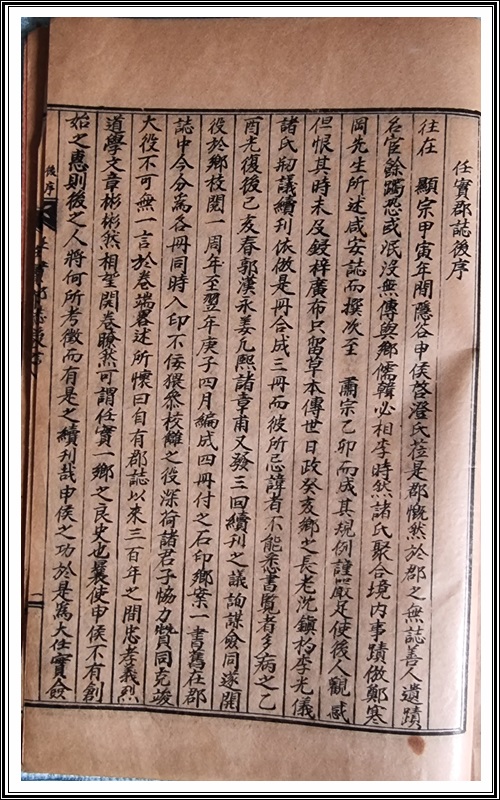 任實郡誌後序
往在 顯宗甲寅年間隱谷申侯啓澄氏莅是郡慨然於郡之無誌善人遺蹟
名宦餘躅恐或泯沒無傳與鄕儒韓必相李時然諸氏聚合境內事蹟倣鄭寒
岡先生所述咸安誌而撰次至 肅宗乙卯而成其規例謹嚴足使後人觀感
但恨其時未及鋟梓廣布只留草本傳世日政癸亥鄕之長老沈鎭杓李光儀
諸氏刱議續刊依倣是冊合成三冊而彼所忌諱者不能悉書覽者多病之乙
酉光復後己亥春郭漢永姜允熙諸章甫又發三回續刊之議詢謀僉同遂開
役於鄕校閱一周年至翌年庚子四月編成四冊付之石印鄕案一書舊在郡
誌中今分爲各冊同時入印不佞猥參校讎之役深荷諸君子恊力贊同克竣
大役不可無一言於卷端畧述所懷曰自有郡誌以來三百年之間忠孝義烈
道學文章彬彬然相望開卷瞭然可謂任實一鄕之良史也曩使申侯不有創
始之惠則後之人將何所考徵而有是之續刊哉申侯之功於是爲大任實
後序